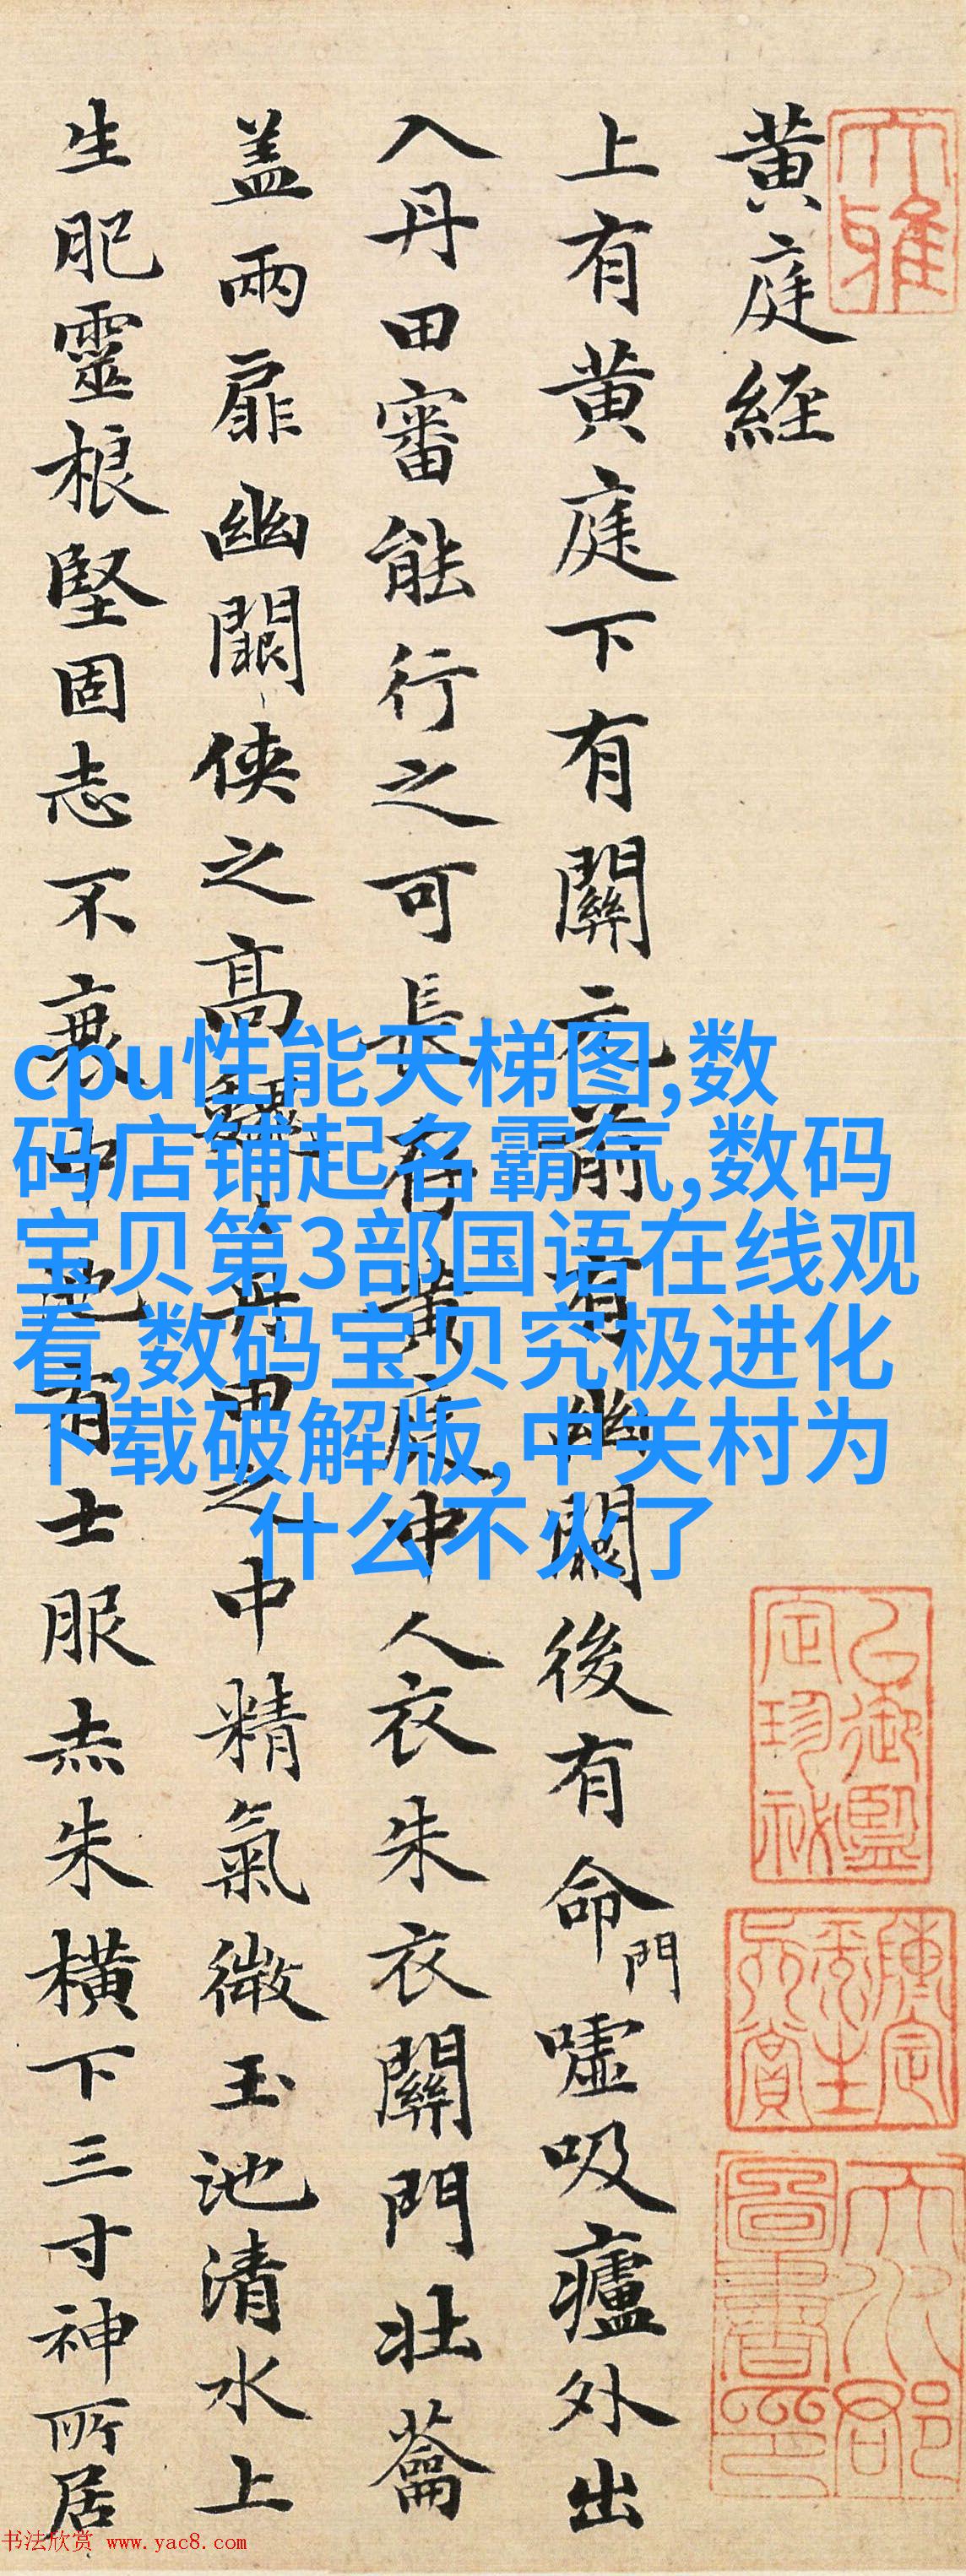 大雅
黄庭經
上有黄庭下有關元前有幽闕後有命門嘘吸廬外出
入丹田審能行之可長存黄庭中人衣朱衣關門壮蘥
盖兩扉幽闕俠之高巍巍丹田之中精氣微玉池清水上
生肥靈根堅固志不衰中池有士服赤朱横下三寸神所居
cpu性能天梯图,数
码店铺起名霸气,数码
宝贝第3部国语在线观
看,数码宝贝究极进化
下载破解版,中关村为
什么不火了
书法欣赏 www.yac8.com